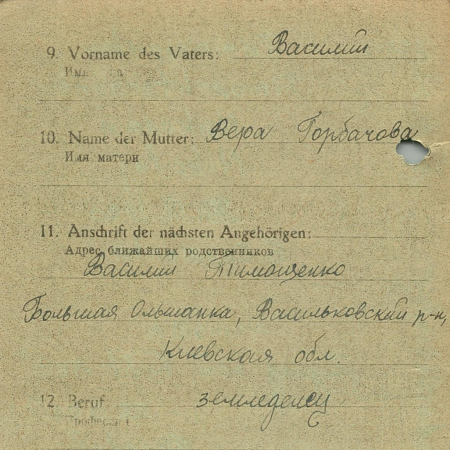 9. Vorname des Vaters: Василий
Имя
10. Name der Mutter: Вера Горбачова
Имя матери
11. Anschrift der nächsten Angehörigen:
Адрес ближайших родственников
Василий Тимощенко
Большая Ольшанка, Васильковский р-н,
Киевская обл.
12. Beruf: земледелец